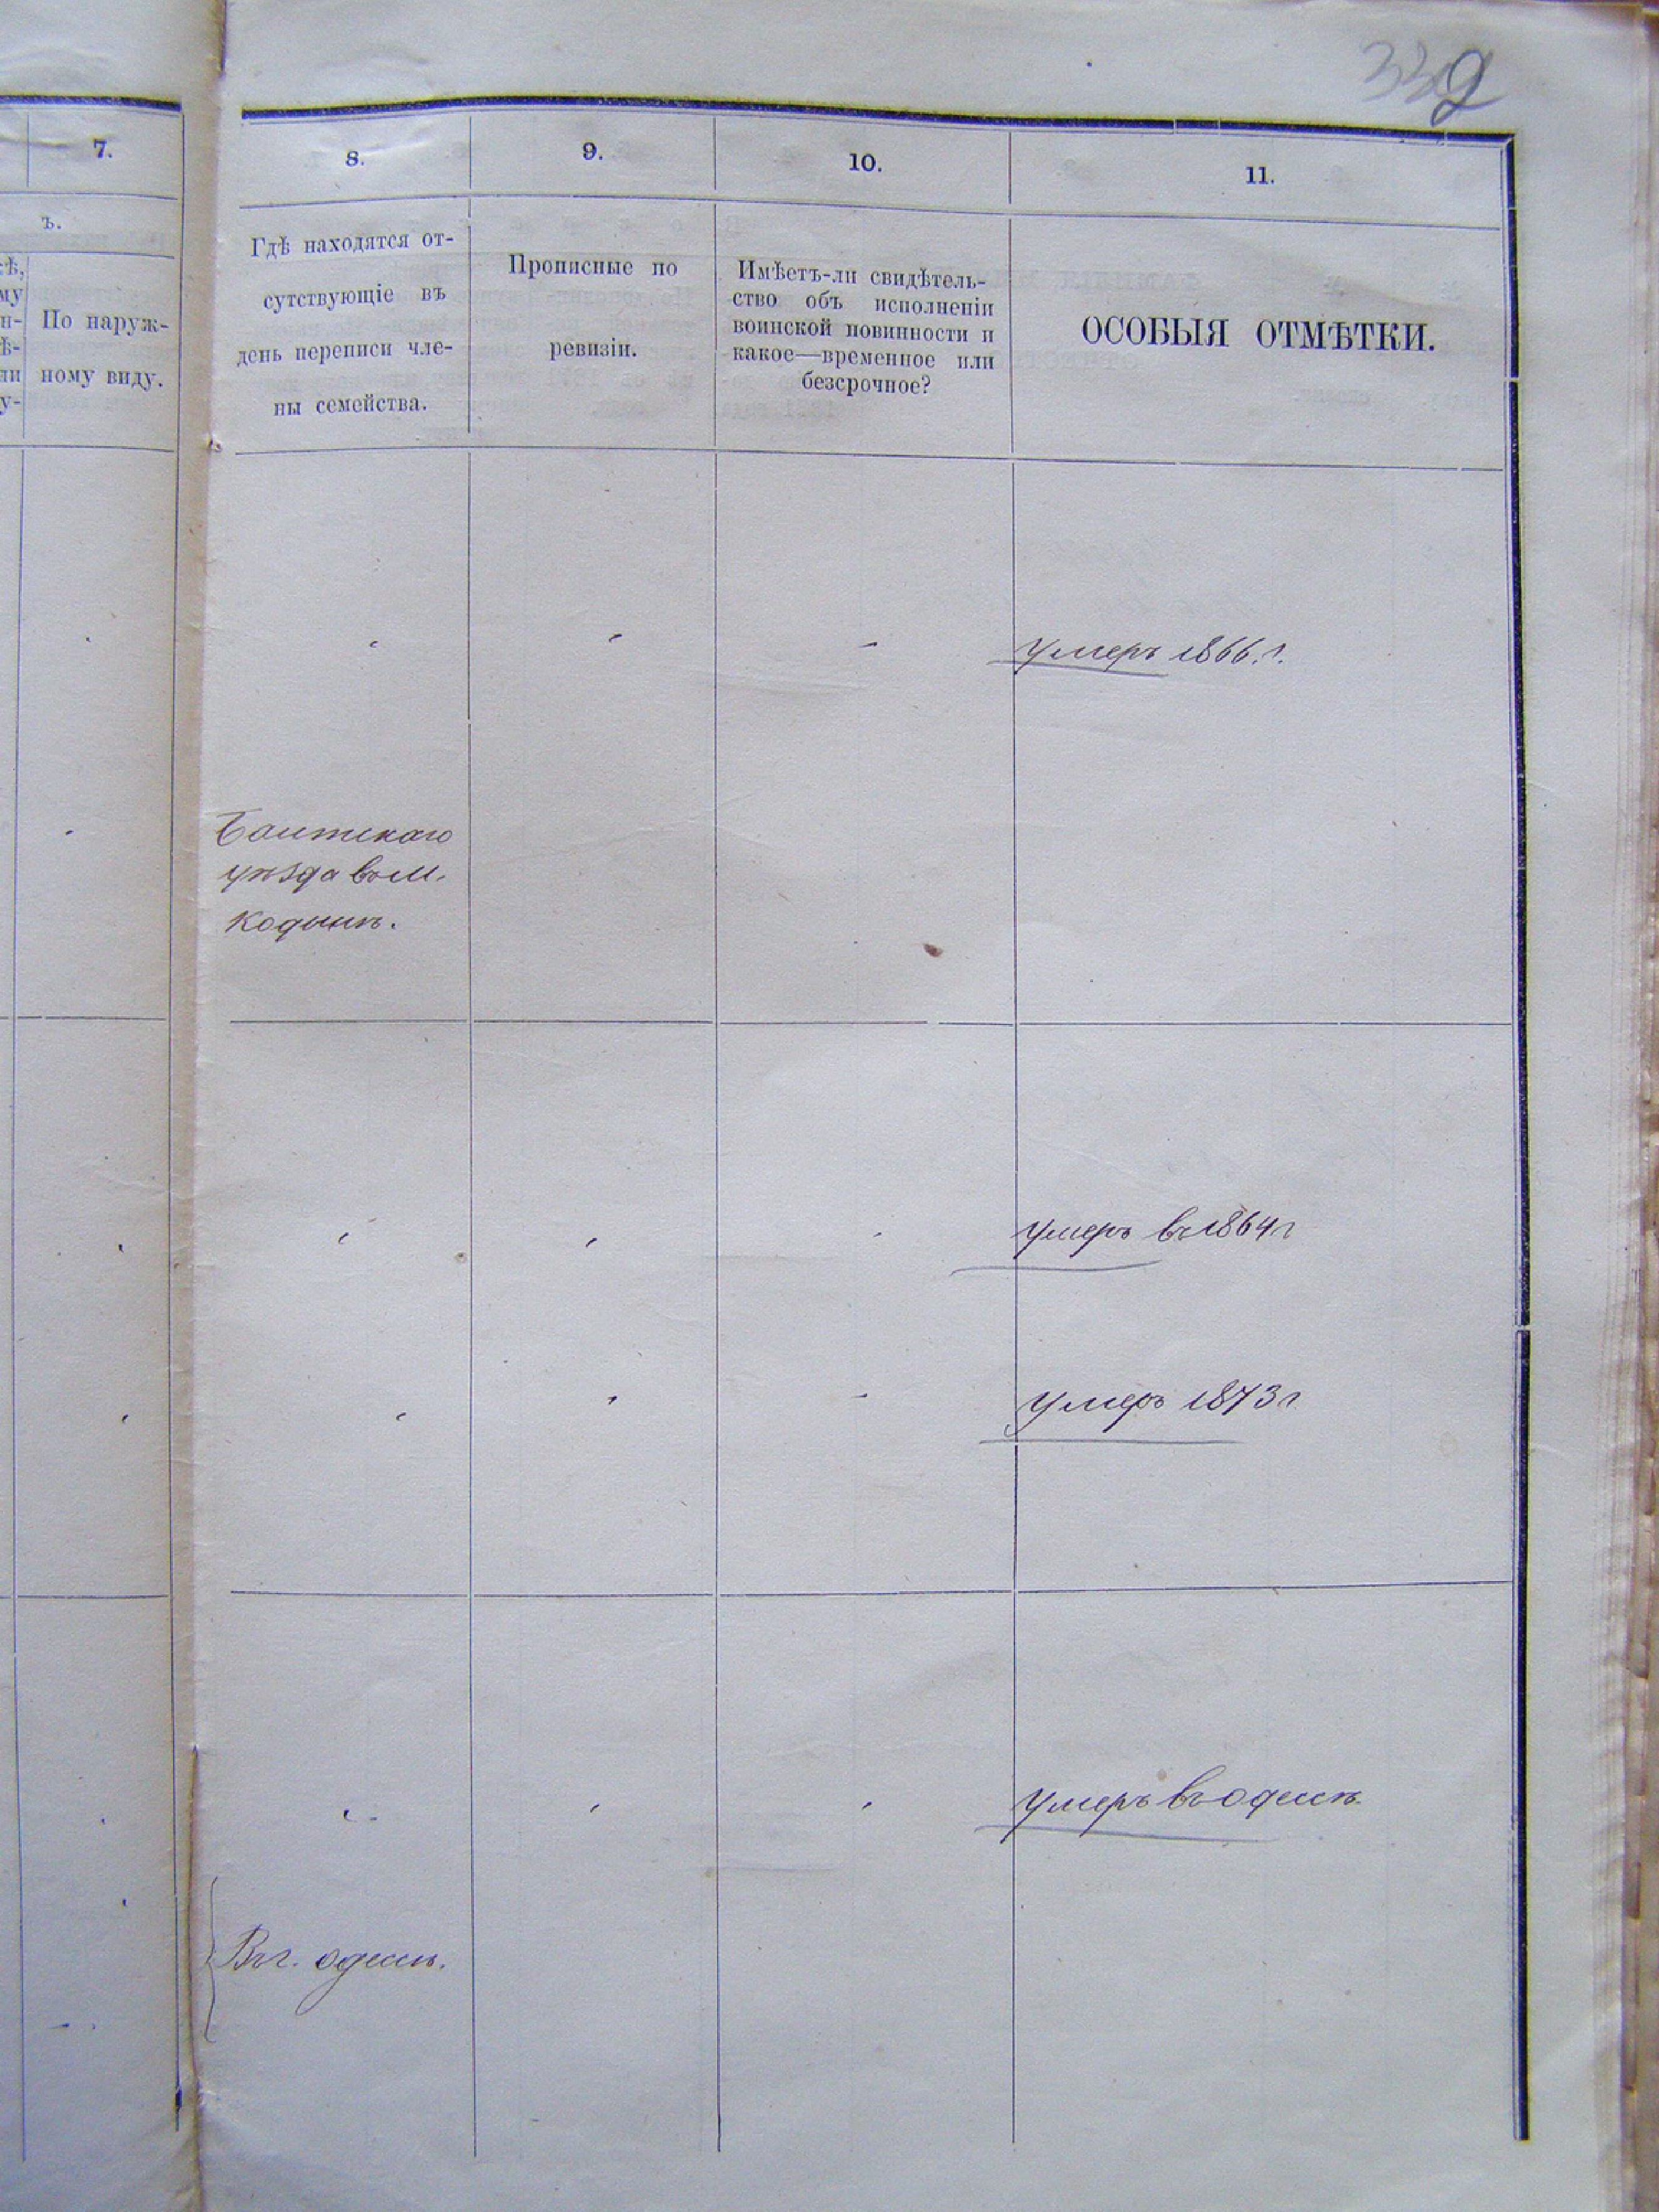 339
7.
8.
9.
10.
11.
ъ.
По наруж-
ному виду.
Гдѣ находятся от-
сутствующіе въ
день переписи чле-
ны семейства.
Прописные по
ревизіи.
Имѣетъ-ли свидѣтель-
ство объ исполненіи
воинской повинности и
какое—временное или
безсрочное?
ОСОБЫЯ ОТМѢТКИ.
умеръ 1866. г.
Балтскаго
уѣзда въ м.
Кодымѣ.
умеръ въ 1864 г
умеръ 1873 г
умеръ въ Одессѣ
Въ г. Одессѣ.